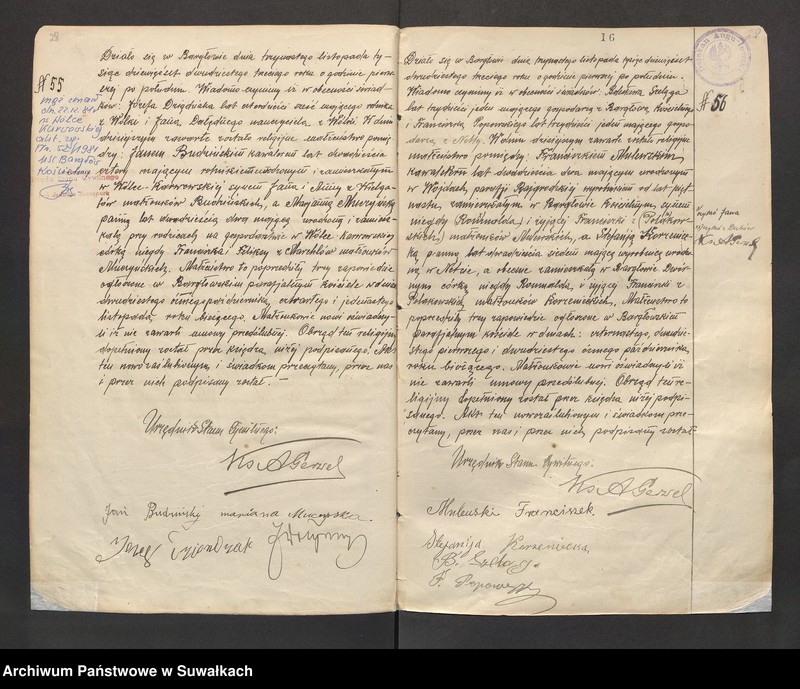 28
№ 55
mąż zmarł
w Wólce
Karwowskiej
USC Bargłów
Kościelny
Działo się w Bargłowie dnia trzynastego listopada ty-
siąc dziewięćset dwudziestego trzeciego roku o godzinie pierw-
szej po południu. Wiadomo czynimy iż w obecności świad-
ków: Józefa lat czterdzieści sześć mającego rolnika
z Wólki i Jana nauczyciela z Wólki. W dniu
dzisiejszym zawarte zostało religijne małżeństwo pomię-
dzy: Janem Budzińskim kawalerem lat dwadzieścia
cztery mającym rolnikiem urodzonym i zamieszkałym
w Wólce-Karwowskiej synem Jana i Anny z
małżonków Budzińskich, a Marjanną Muczyńską
panną lat dwadzieścia dwa mającą urodzoną i zamiesz-
kałą przy rodzicach na gospodarstwie w Wólce-Karwowskiej
córką niegdy Franciszka i Feliksy z małżonków
Muczyńskich. Małżeństwo to poprzedziły trzy zapowiedzie
ogłoszone w Bargłowskim parafjalnym kościele w dniach:
dwudziestego ósmego października, czwartego i jedenastego
listopada roku bieżącego. Małżonkowie nowi oświadczy-
li iż nie zawarli umowy przedślubnej. Obrzęd ten religijny
dopełniony został przez księdza niżej podpisanego. Akt
ten nowozaślubionym i świadkom przeczytany, przez nas
i przez nich podpisany został.
Urzędnik Stanu Cywilnego:
Ks A Gerwel
Jan Budzinsky marianna Muczyńska
Józef
16
№ 56
Działo się w Bargłowie dnia trzynastego listopada tysiąc dziewięćset
dwudziestego trzeciego roku o godzinie pierwszej po południu.
Wiadomo czynimy iż w obecności świadków:
lat trzydzieści jeden mającego gospodarza z Bargłowa Kościelnego
i Franciszka Popowskiego lat trzydzieści jeden mającego gospo-
darza z Netty. W dniu dzisiejszym zawarte zostało religijne
małżeństwo pomiędzy: Franciszkiem Mulewskim
kawalerem lat dwadzieścia dwa mającym urodzonym
w Wojdach, parafji Rajgrodzkiej wyrobnikiem od lat pięt-
nastu zamieszkałym w Bargłowie Kościelnym, synem
niegdy i żyjącej Franciszki z
małżonków Mulewskich, a Stefanją Korzenie-
cką panną lat dwadzieścia siedem mającą wyrobnicą urodzo-
ną w Netcie, a obecnie zamieszkałą w Bargłowie Dwor-
nym córką niegdy Romualda, i żyjącej Franciszki z
małżonków Korzenieckich. Małżeństwo to
poprzedziły trzy zapowiedzie ogłoszone w Bargłowskim
parafjalnym kościele w dniach: czternastego, dwudzie-
stego pierwszego i dwudziestego ósmego października,
roku bieżącego. Małżonkowie nowi oświadczyli iż
nie zawarli umowy przedślubnej. Obrzęd ten re-
ligijny dopełniony został przez księdza niżej podpi-
sanego. Akt ten nowozaślubionym i świadkom prze-
czytany, przez nas i przez nich podpisany został.
Urzędnik Stanu Cywilnego.
Ks A Gerwel
Mulewski Franciszek.
Stefanija Korzeniecka
F. Popowski
Ks A Gerwel
Archiwum Państwowe w Suwałkach